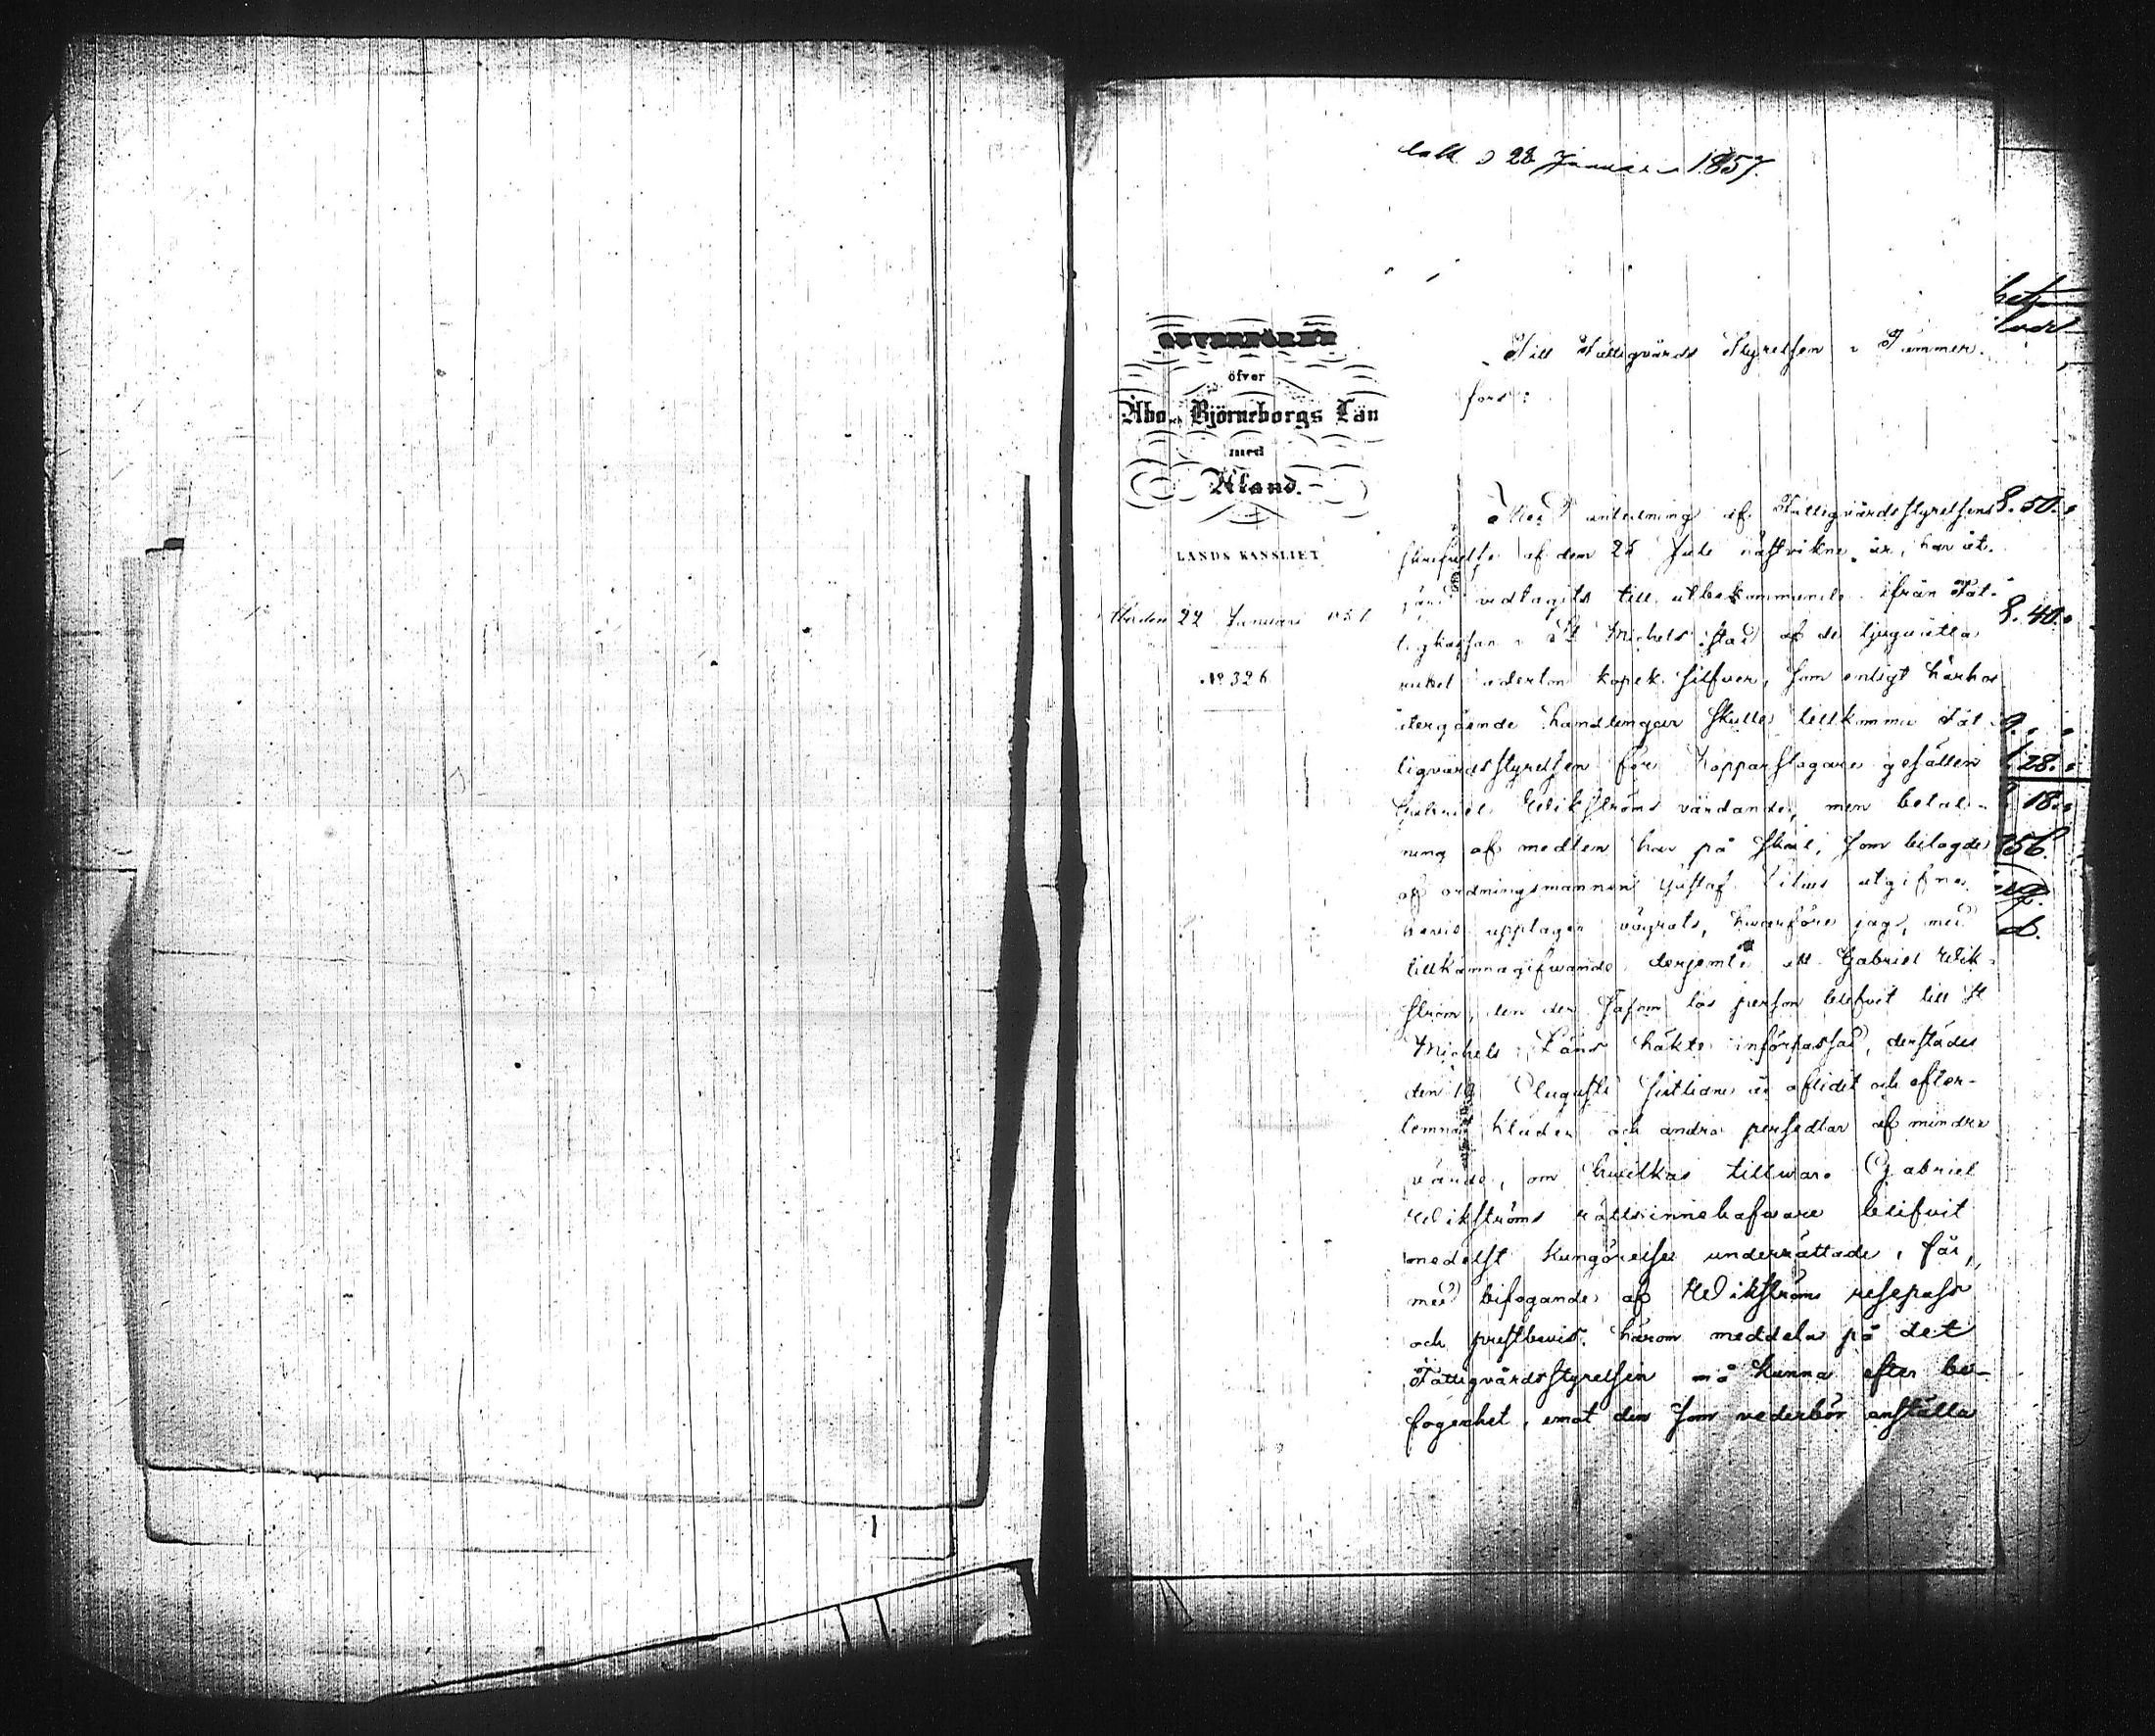 d 28 Januari 1857.
GUVERNÖREN
öfver
Åbo och Björneborgs Län
med
Åland.
LANDS KANSLIET
Åbo den 22 Januari 1857
No. 326
Till Fattigvårds Styrelsen i Tammer-
fors:
Med anledning af Fattigvårdsstyrelsens
skrifvelse af den 25 Juli nästvikne år, har åt-
gärd vidtagits till utbekommande ifrån Fat-
tigkassan i St Michels stad af de tjuguåtta
rubel aderton kopek silfver, som enligt härhos
återgående handlingar skulle tillkomma Fat-
tigvårdsstyrelsen för Kopparslagare gesällen
Gabriel Wikströms vårdande, men betal-
ning af medlen har på skäl, som bilagde
af ordningsmannen Gustaf utgifne
bevis upptager vägrats, hvarföre jag, med
tillkännagifvande derjemte att Gabriel Wik-
ström, den der såsom lös person blifvit till St
Michels Läns häkte införpassad, derstädes
den 19 Augusti sistlidne år aflidit och efter-
lemnat kläder och andra persedlar af mindre
värde, om hvilkas tillvaro Gabriel
Wikströms rättsinnehafvare blifvit
medelst kungörelse underrättade, får,
med bifogande af Wikströms respass
och prestbevis, härom meddela på det
Fattigvårdsstyrelsen må kunna efter be-
fogenhet, emot den som vederbör anställa
8.50.
8.40.
28.
18.
56.